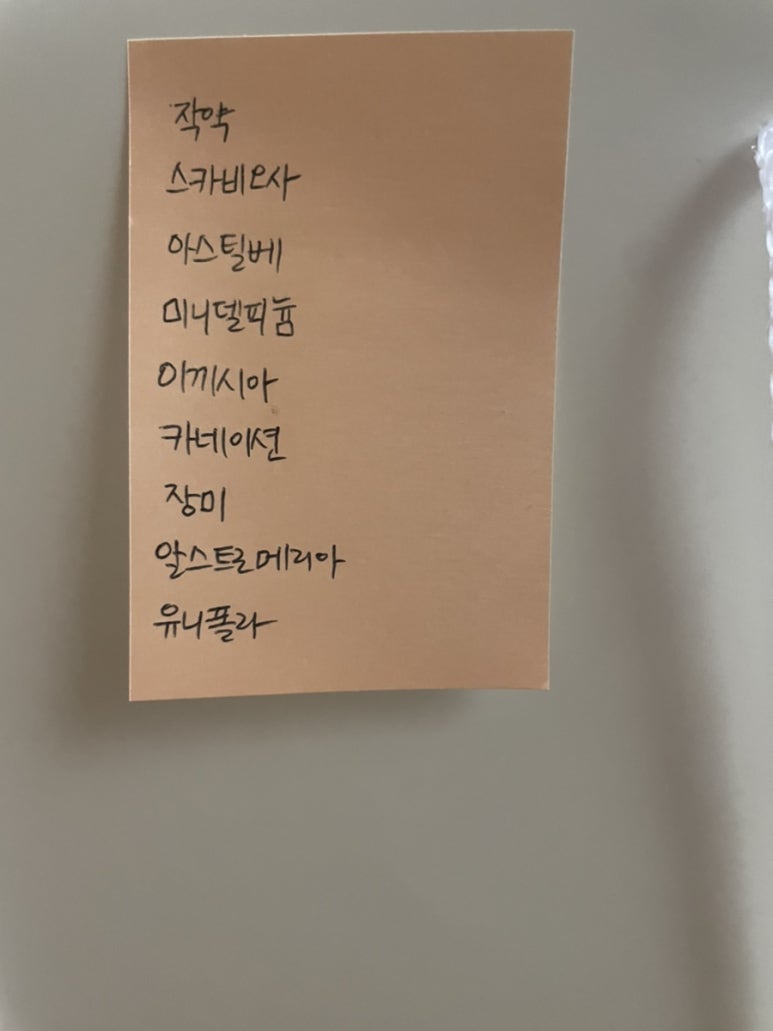 작약
스카비오사
아스틸베
미니델피늄
아끼시아
카네이션
장미
알스트로메리아
유니폴라